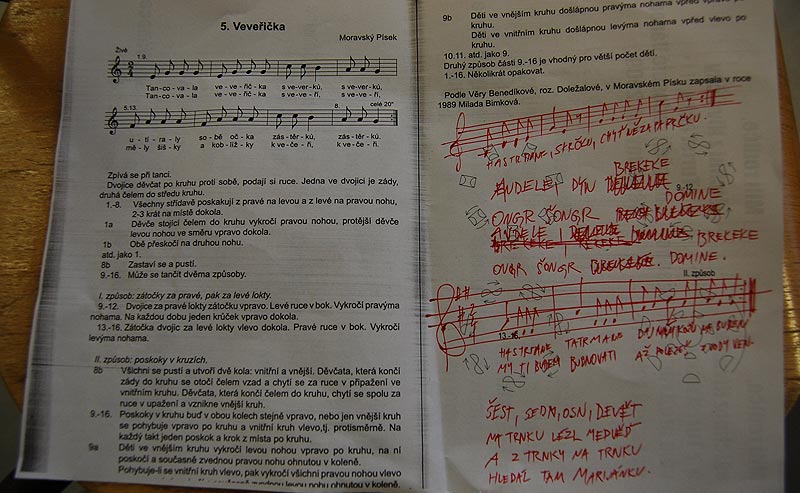 5. Veveřička
Moravský Písek
Živě
1.9.
Tan-co-va-la ve-ve-řič-ka s ve-ver-ků, s ve-ver-ků,
Tan-co-va-la ve-ve-řič-ka s ve-ve-ří, s ve-ve-ří,
5.13. 8. celé 20°
u-tí-ra-ly so-bě oč-ka zás-těr-ků, zás-těr-ků.
mě-ly šiš-ky a kob-líž-ky k ve-če-ři, k ve-če-ři.
Zpívá se při tanci.
Dvojice děvčat po kruhu proti sobě, podají si ruce. Jedna ve dvojici je zády,
druhá čelem do středu kruhu.
1.-8. Všechny střídavě poskakují z pravé na levou a z levé na pravou nohu,
2-3 krát na místě dokola.
1a Děvče stojící čelem do kruhu vykročí pravou nohou, protější děvče
levou nohou ve směru vpravo dokola.
1b Obě přeskočí na druhou nohu.
atd. jako 1.
8b Zastaví se a pustí.
9.-16. Může se tančit dvěma způsoby.
I. způsob: zátočky za pravé, pak za levé lokty.
9.-12. Dvojice za pravé lokty zátočkou vpravo. Levé ruce v bok. Vykročí pravýma
nohama. Na každou dobu jeden krůček vpravo dokola.
13.-16. Zátočka dvojic za levé lokty vlevo dokola. Pravé ruce v bok. Vykročí
levýma nohama.
II. způsob: poskoky v kruzích.
8b Všichni se pustí a utvoří dvě kola: vnitřní a vnější. Děvčata, která končí
zády do kruhu se otočí čelem vzad a chytí se za ruce v připažení ve
vnitřním kruhu. Děvčata, která končí čelem do kruhu, chytí se spolu za
ruce v upažení a vznikne vnější kruh.
9.-16. Poskoky v kruhu buď v obou kolech stejně vpravo, nebo jen vnější kruh
se pohybuje vpravo po kruhu a vnitřní kruh vlevo,tj. protisměrně. Na
každý takt jeden poskok a krok z místa po kruhu.
9a Děti ve vnějším kruhu vykročí levou nohou vpravo po kruhu, na ní
poskočí a současně zvednou pravou nohu ohnutou v koleně.
Pohybuje-li se vnitřní kruh vlevo, pak vykročí všichni pravou nohou vlevo
9b Děti ve vnějším kruhu došlápnou pravýma nohama vpřed vpravo po
kruhu.
Děti ve vnitřním kruhu došlápnou levýma nohama vpřed vlevo po
kruhu.
10.11. atd. jako 9.
Druhý způsob části 9.-16 je vhodný pro větší počet dětí.
1.-16. Několikrát opakovat.
Podle Věry Benedíkové, roz. Doležalové, v Moravském Písku zapsala v roce
1989 Milada Bimková.
HASTRMANE, SKRČKU, CHYŤ MĚ ZA PRČKU.
BREKEKE
ANDELE, DYN
9.-12.
DOMINE
ONGR ŠONGR
ANDELE, BREKEKE
ONGR ŠONGR DOMINE.
II. způsob
13.-16.
HASTRMANE TATRMANE DEJ NÁM KŮŽI NA BUBEN
MY TI BUDEM BUBNOVATI AŽ POLEZEŠ Z VODY VEN.
ŠEST, SEDM, OSM, DEVĚT
NA TRNKU LEZL MEDVĚĎ
A Z TRNKY NA TRNKU
HLEDAL TAM MARIJÁNKU.